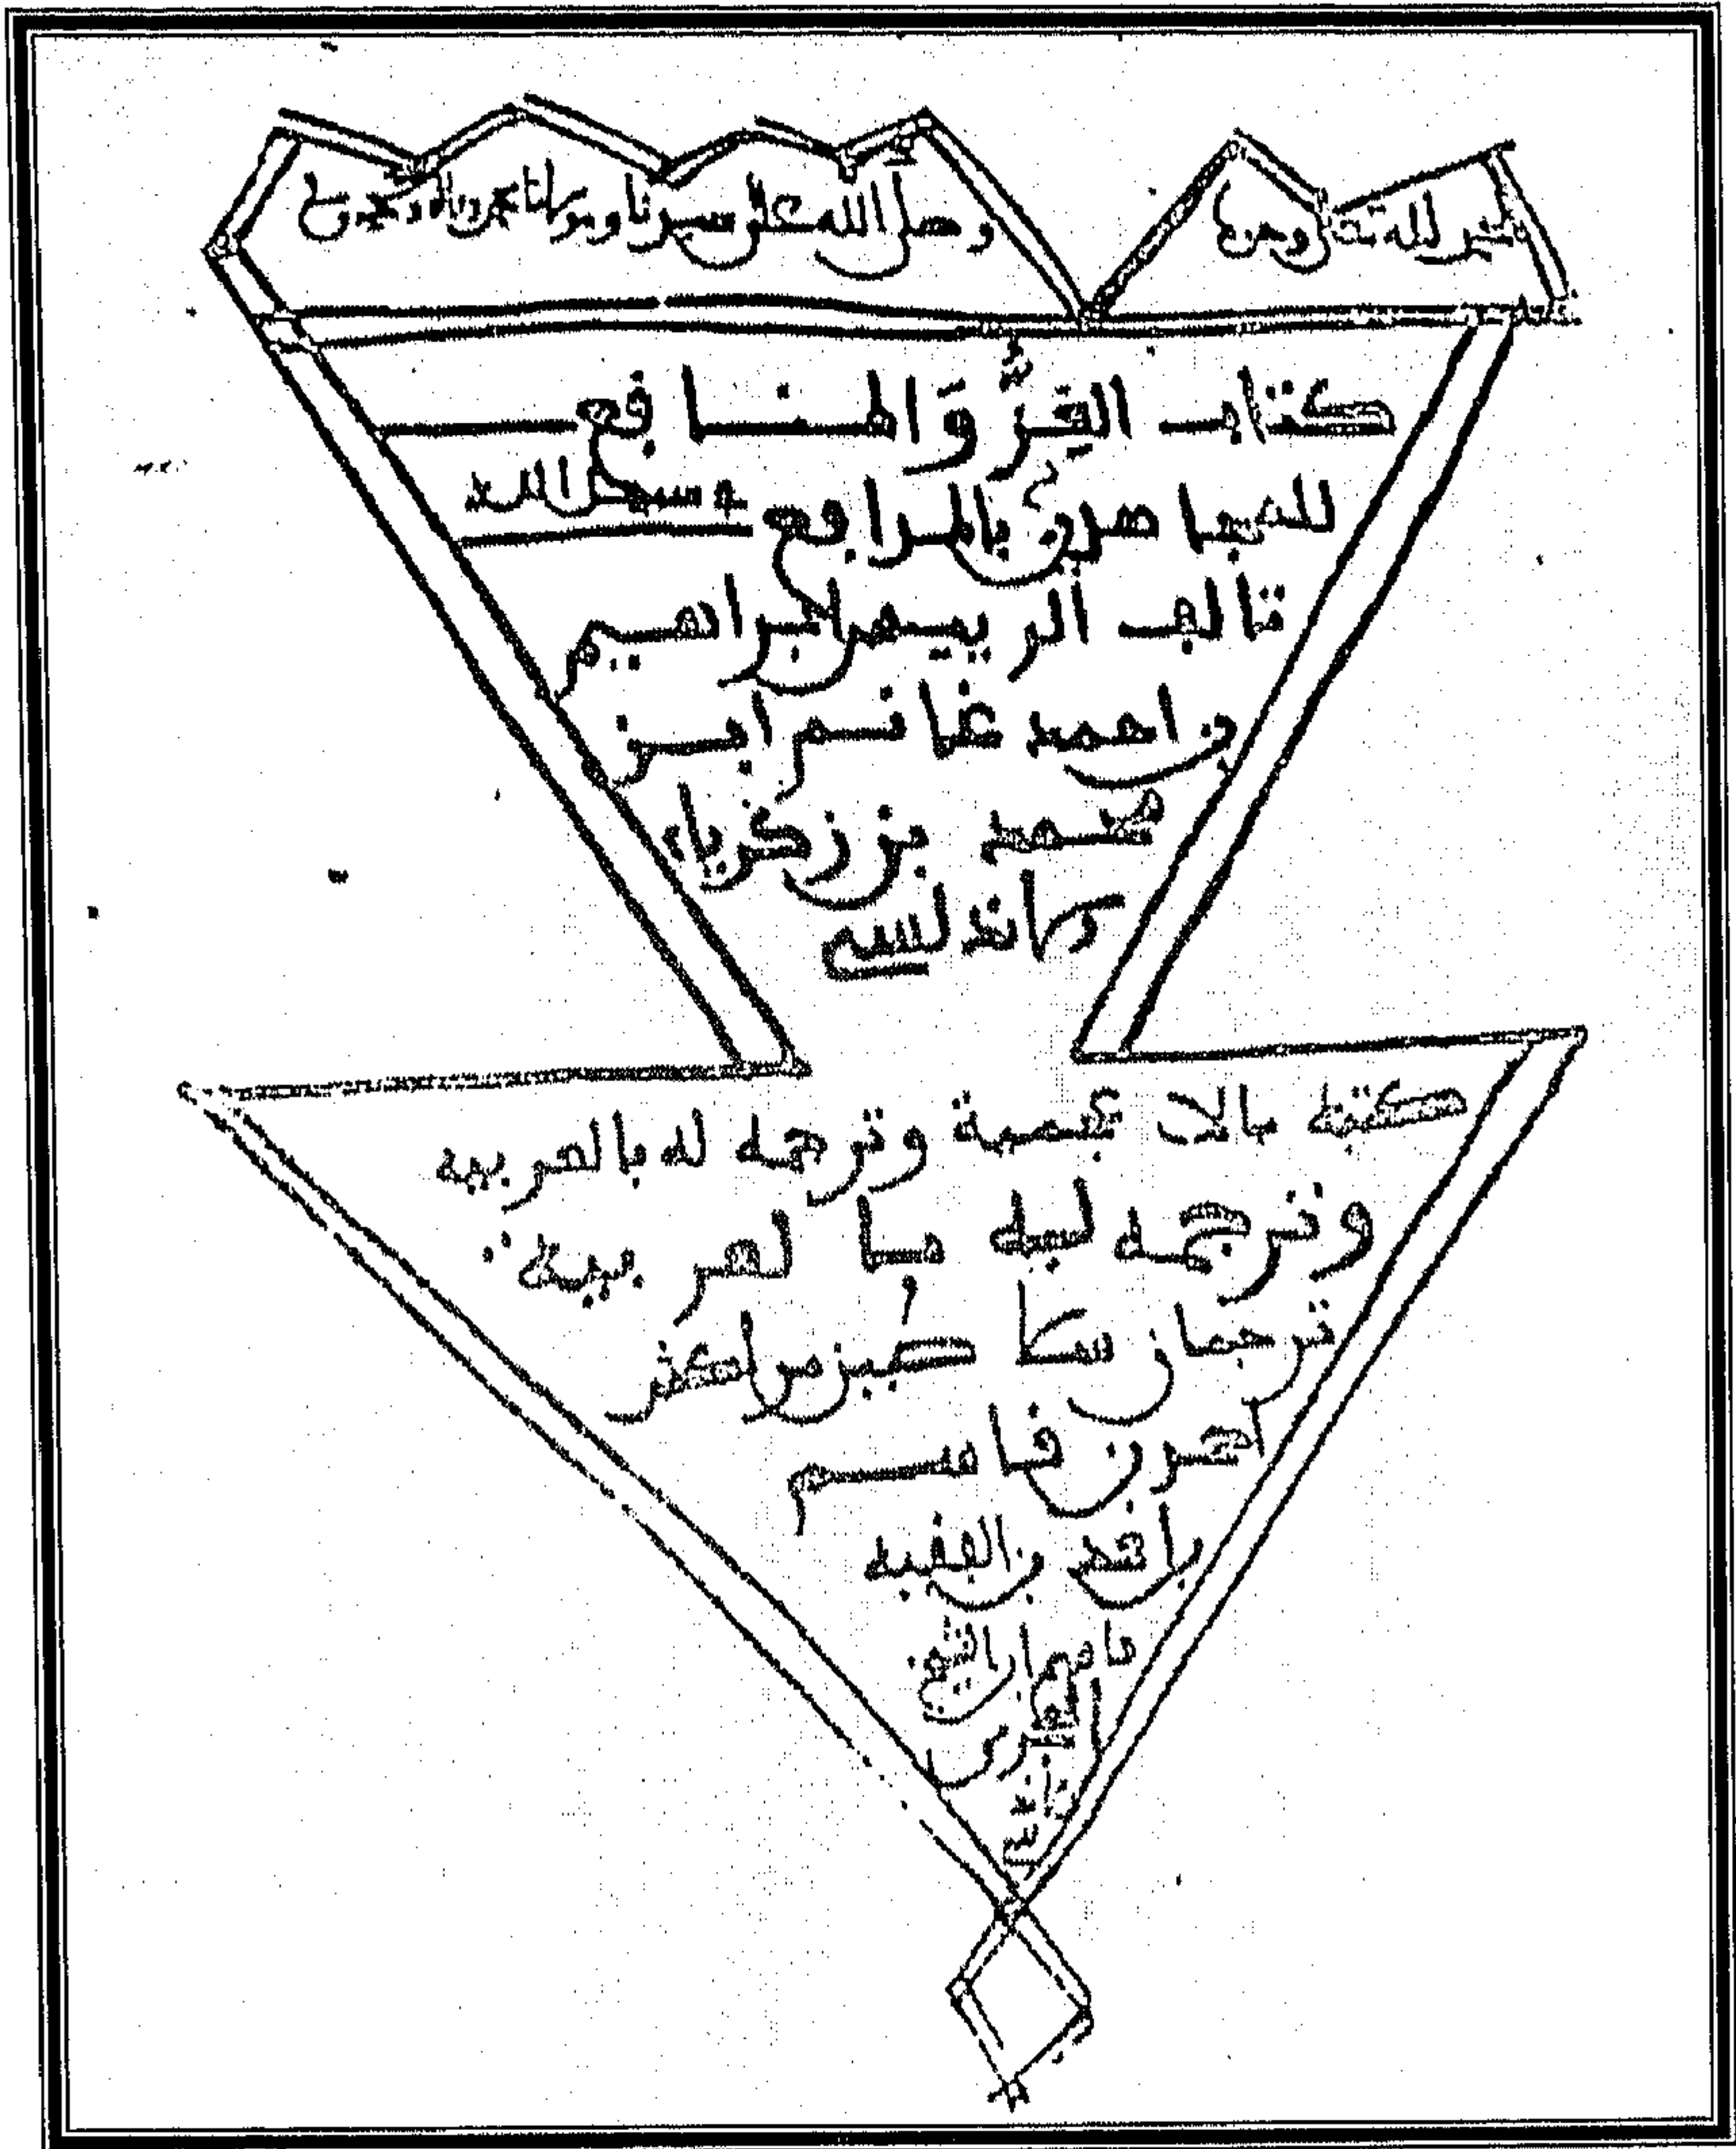 الحمد لله تعالى وحده
وصلى الله على سيدنا ومولانا محمد وءاله وصحبه وسلم
كتاب العزّ وَالمنافع
للمجاهدين بالمدافع وسبيل الله
تاليف الرييس ابراهيم
بن احمد غانم ابن
محمد بن زكرياء
الاندلسي
كتبه بالاعجمية وترجمه له بالعربيه
وترجمه ليه بالعربية
ترجمان سلاطين مراكش
احمد بن قاسم
بن الفقيه
قاسم ابن الشيخ
الحجري
الاندلسي